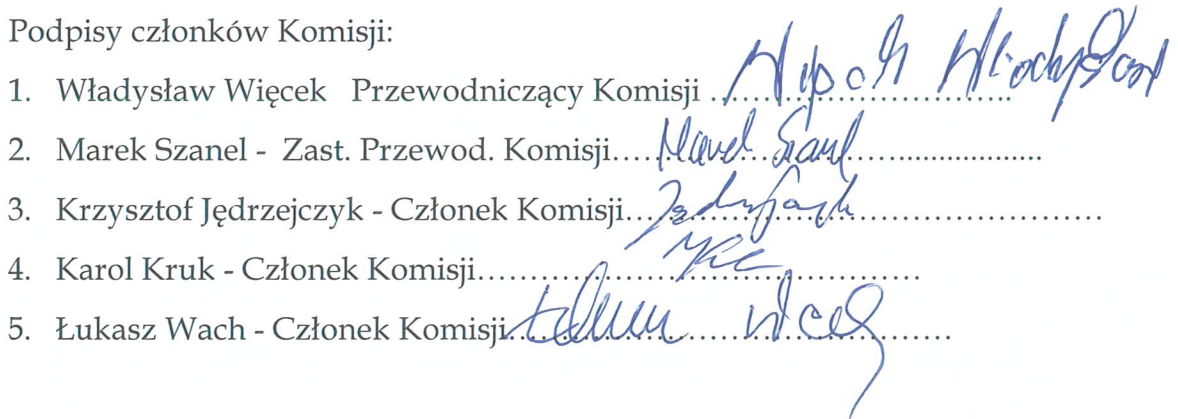 Podpisy członków Komisji:
1. Władysław Więcek Przewodniczący Komisji ................................ Władysław
2. Marek Szanel - Zast. Przewod. Komisji.... Marek Szanel ........................
3. Krzysztof Jędrzejczyk - Członek Komisji.......................................
4. Karol Kruk - Członek Komisji................................................
5. Łukasz Wach - Członek Komisji................................................